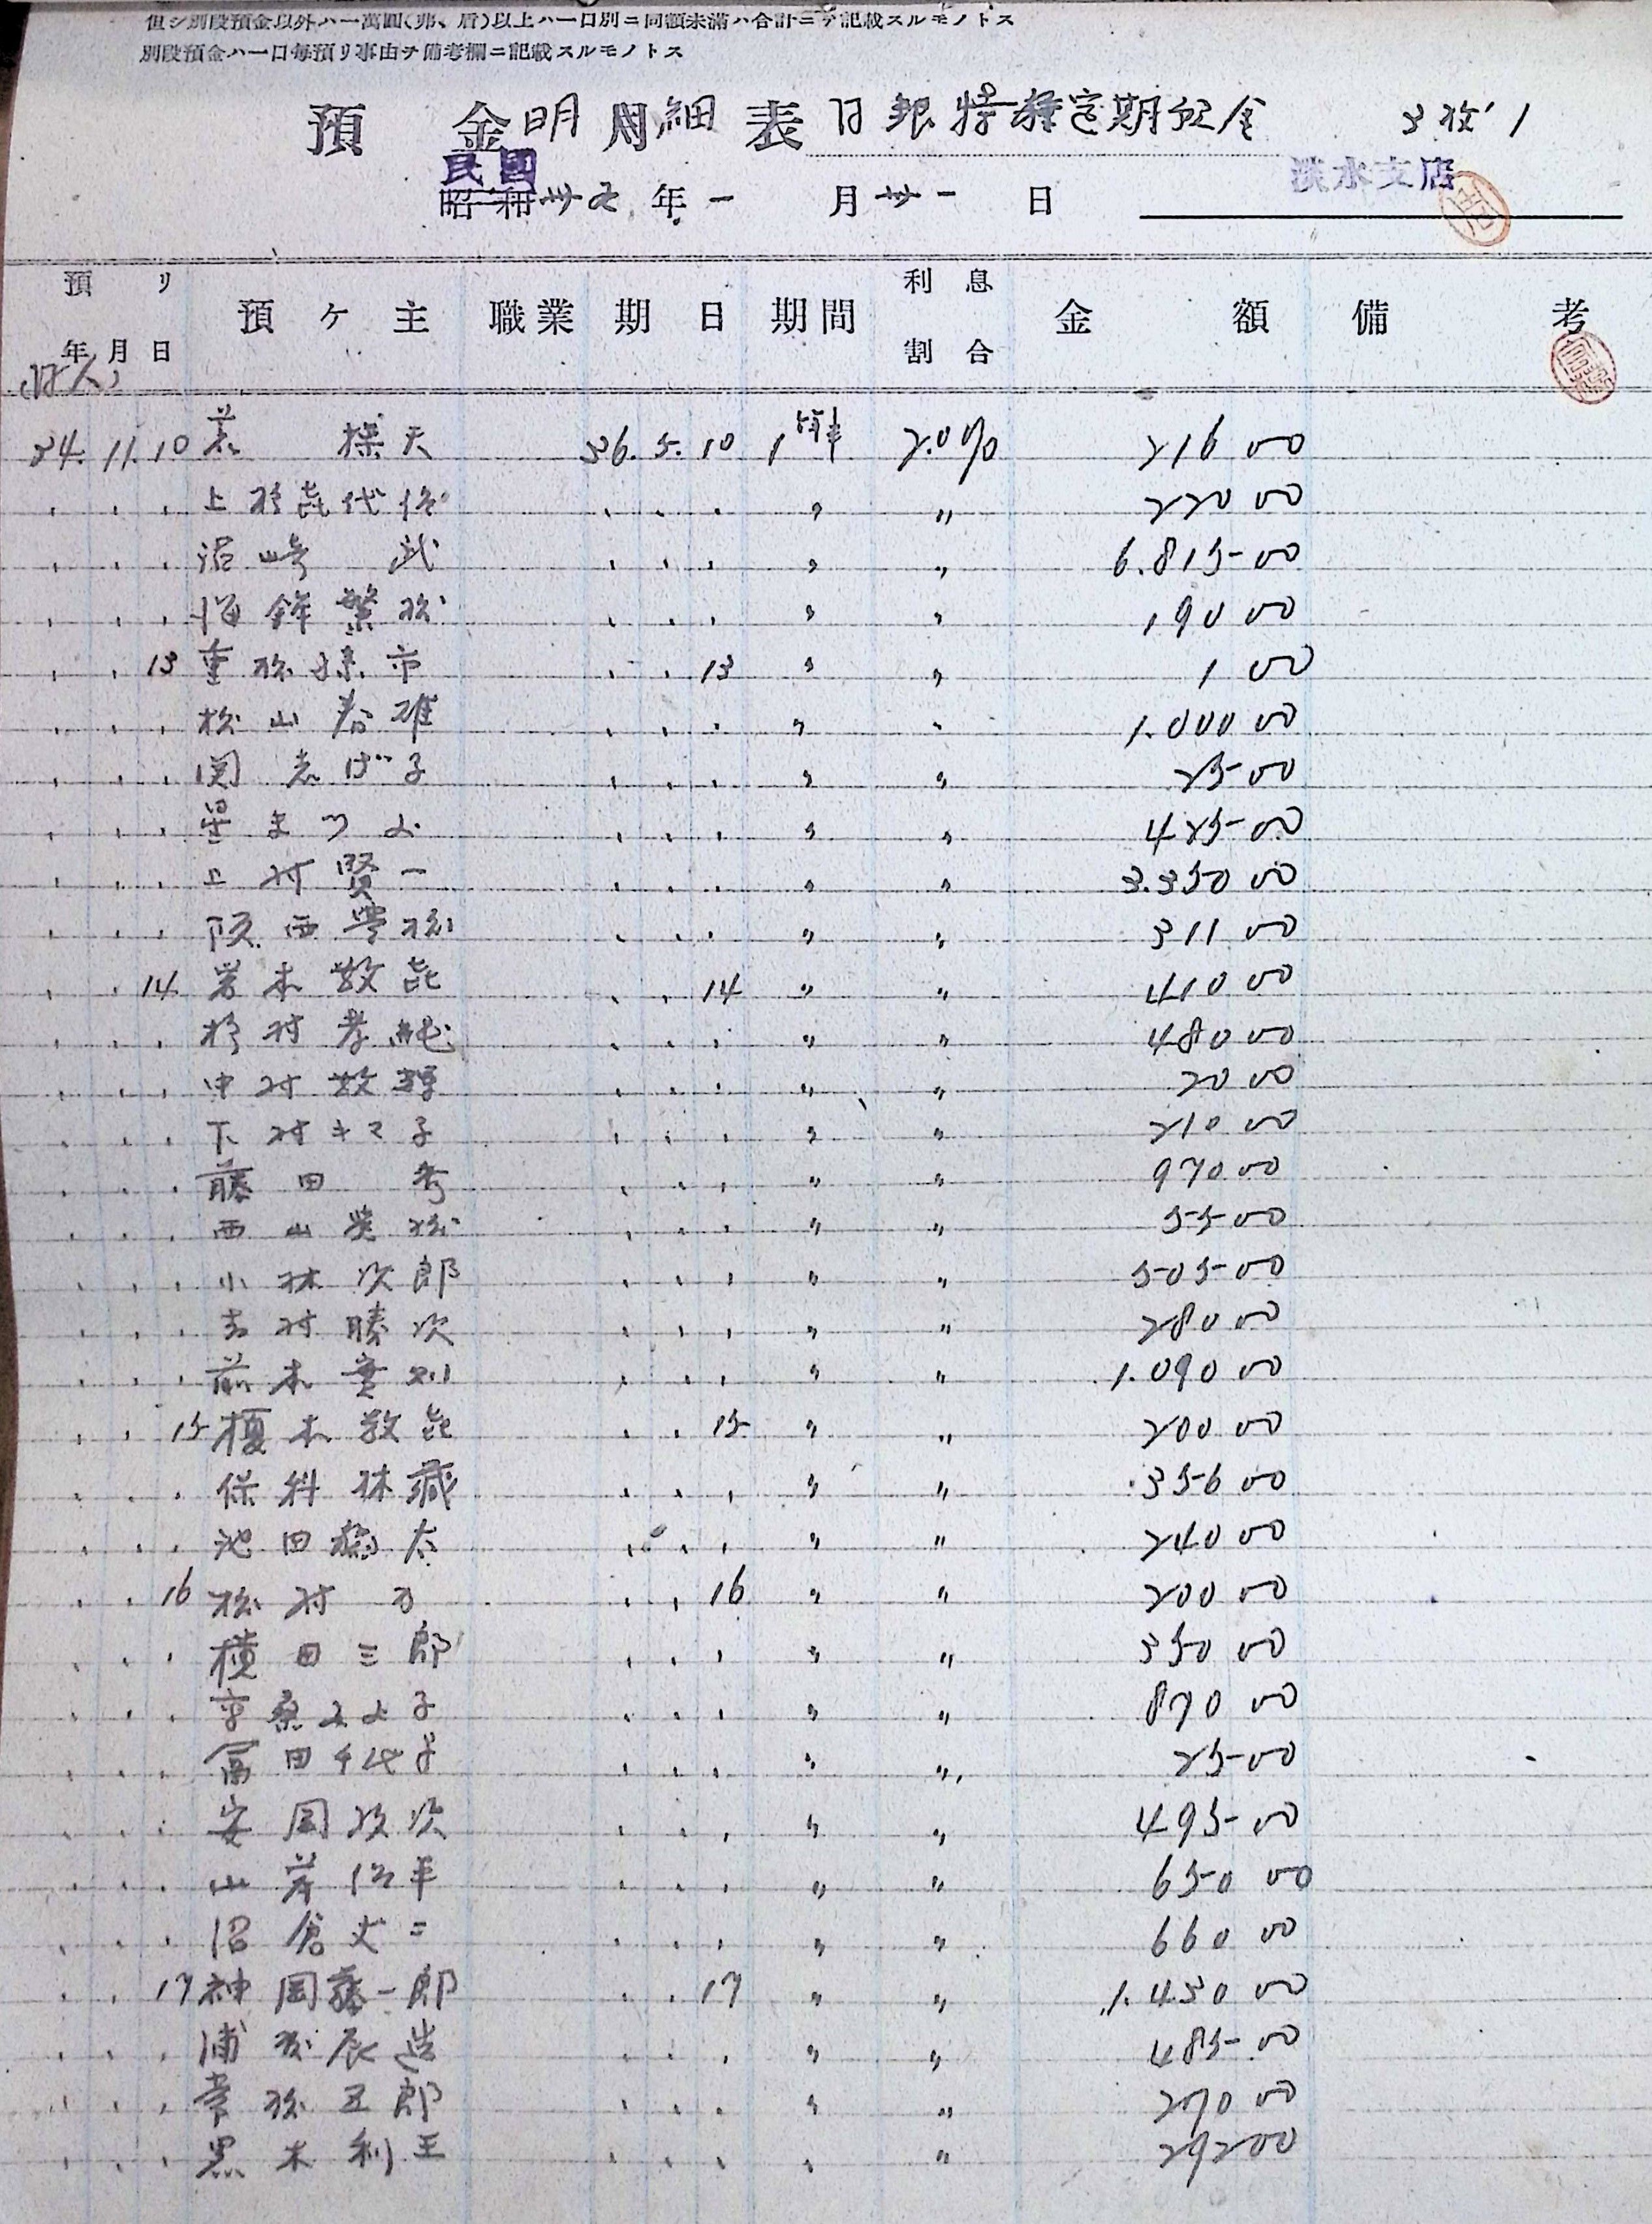 但シ別段預金以外ハ一萬圓(弗、盾)以上ハ一口別ニ同額未滿ハ合計ニテ記載スルモノトス
別段預金ハ一口毎預リ事由ヲ備考欄ニ記載スルモノトス
預金明細表 日銀特種定期預金 3枚ノ1
民國 淡水支店
昭和卅五年一月廿一日
預リ年月日 預ケ主 職業 期日 期間 利息割合 金額 備考
34.11.10 操 36.5.10 1 2.0% 216 00
. . . 上杉㐂代松 . . . 〃 〃 220 00
. . . 沼崎 武 . . . 〃 〃 6.815 00
. . . 海鉾繁松 . . . 〃 〃 190 00
. . 13 重松孫市 . . 13 〃 〃 1 00
. . . 松山春雄 . . . 〃 〃 1.000 00
. . . 関志げ子 . . . 〃 〃 25 00
. . . 星まつよ . . . 〃 〃 425 00
. . . 上村賢一 . . . 〃 〃 3.350 00
. . . 阪西豊松 . . . 〃 〃 311 00
. . 14 岩本数㐂 . . 14 〃 〃 410 00
. . . 杉村孝純 . . . 〃 〃 480 00
. . . 中村数 . . . 〃 〃 20 00
. . . 下村キマ子 . . . 〃 〃 210 00
. . . 藤田 秀 . . . 〃 〃 970 00
. . . 西山栄松 . . . 〃 〃 55 00
. . . 小林次郎 . . . 〃 〃 505 00
. . . 吉村勝次 . . . 〃 〃 280 00
. . . 前本實 . . . 〃 〃 1.090 00
. . 15 榎本数㐂 . . 15 〃 〃 200 00
. . . 保科林蔵 . . . 〃 〃 356 00
. . . 池田 太 . . . 〃 〃 240 00
. . 16 松村 . . 16 〃 〃 200 00
. . . 横田三郎 . . . 〃 〃 350 00
. . . みよ子 . . . 〃 〃 870 00
. . . 冨田千代子 . . . 〃 〃 25 00
. . . 安岡政次 . . . 〃 〃 495 00
. . . 山岸 平 . . . 〃 〃 650 00
. . . 沼倉丈二 . . . 〃 〃 660 00
. . 17 神岡藤一郎 . . 17 〃 〃 1.430 00
. . . 浦 辰造 . . . 〃 〃 485 00
. . . 常松五郎 . . . 〃 〃 270 00
. . . 黒木利王 . . . 〃 〃 292 00